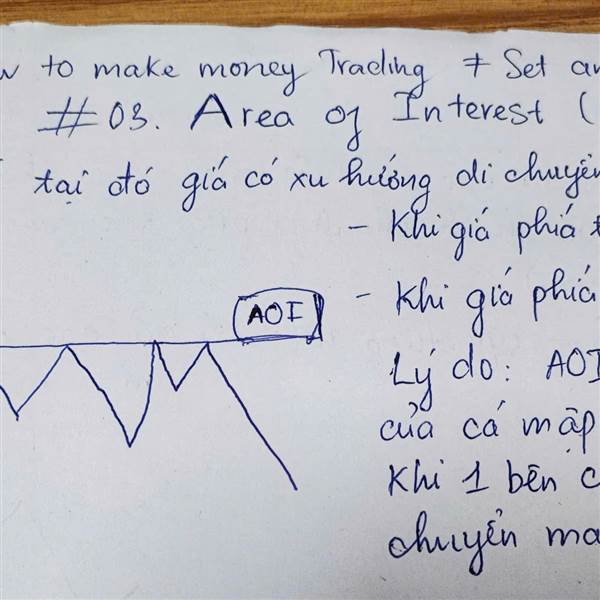 to make money Trading ≠ Set an
#03. Area of Interest (
tại đó giá có xu hướng di chuyển
- Khi giá phía t
- Khi giá phía
AOI
Lý do: AOI
của cá mập
Khi 1 bên c
chuyển ma